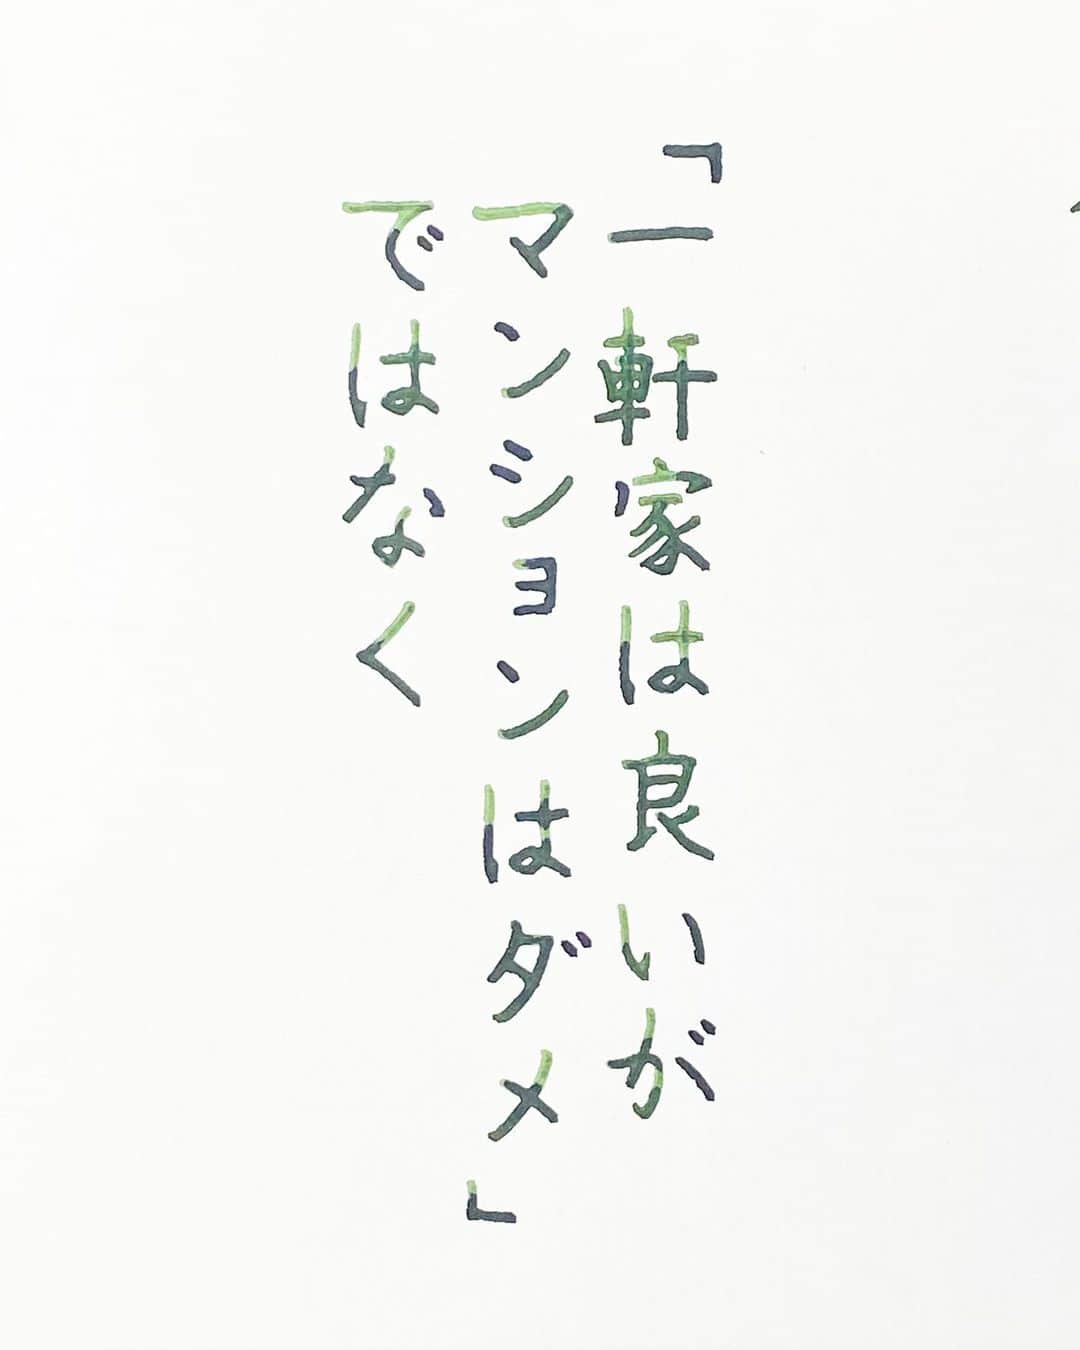 「一軒家は良いが
マンションはダメ」
ではなく